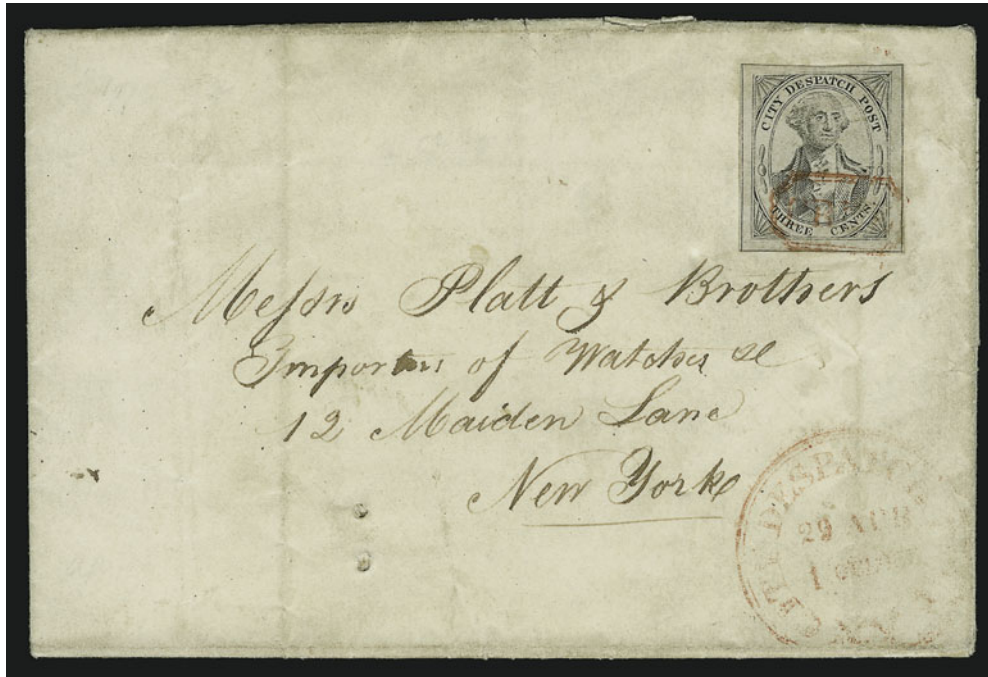 CITY DESPATCH POST
THREE CENTS.
Messrs Platt & Brothers
Importers of Watches &c
12 Maiden Lane
New York
CITY DESPATCH
29 AUG
1 O'CLOCK